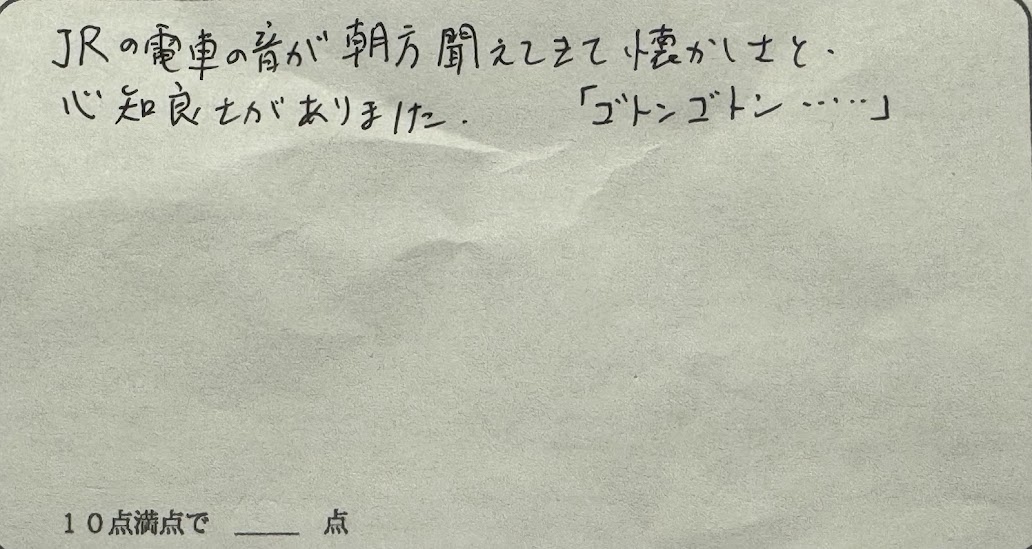 JRの電車の音が朝方聞えてきて懐かしさと、
心知良さがありました。 「ゴトンゴトン……」
10点満点で ____ 点